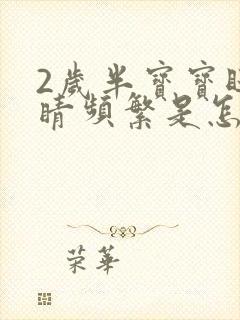 2歲半寶寶眨
睛頻繁是怎
榮華